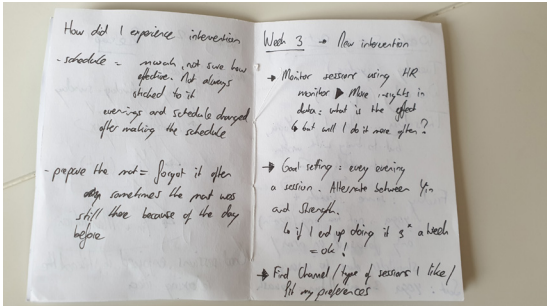 How did I experience intervention
- schedule = mwah, not sure how
effective. Not always
sticked to it
evenings and schedule changed
after making the schedule
- prepare the mat = forgot it often
sometimes the mat was
still there because of the day
before
Week 3 → New intervention
→ Monitor sessions using HR
monitor ▶ More insights in
data: what is the effect
↳ but will I do it more often?
→ Goal setting: every evening
a session. Alternate between Yin
and Strength.
↳ if I end up doing it 3x a week
= ok!
→ Find Channel / type of sessions I like /
fit my preferences